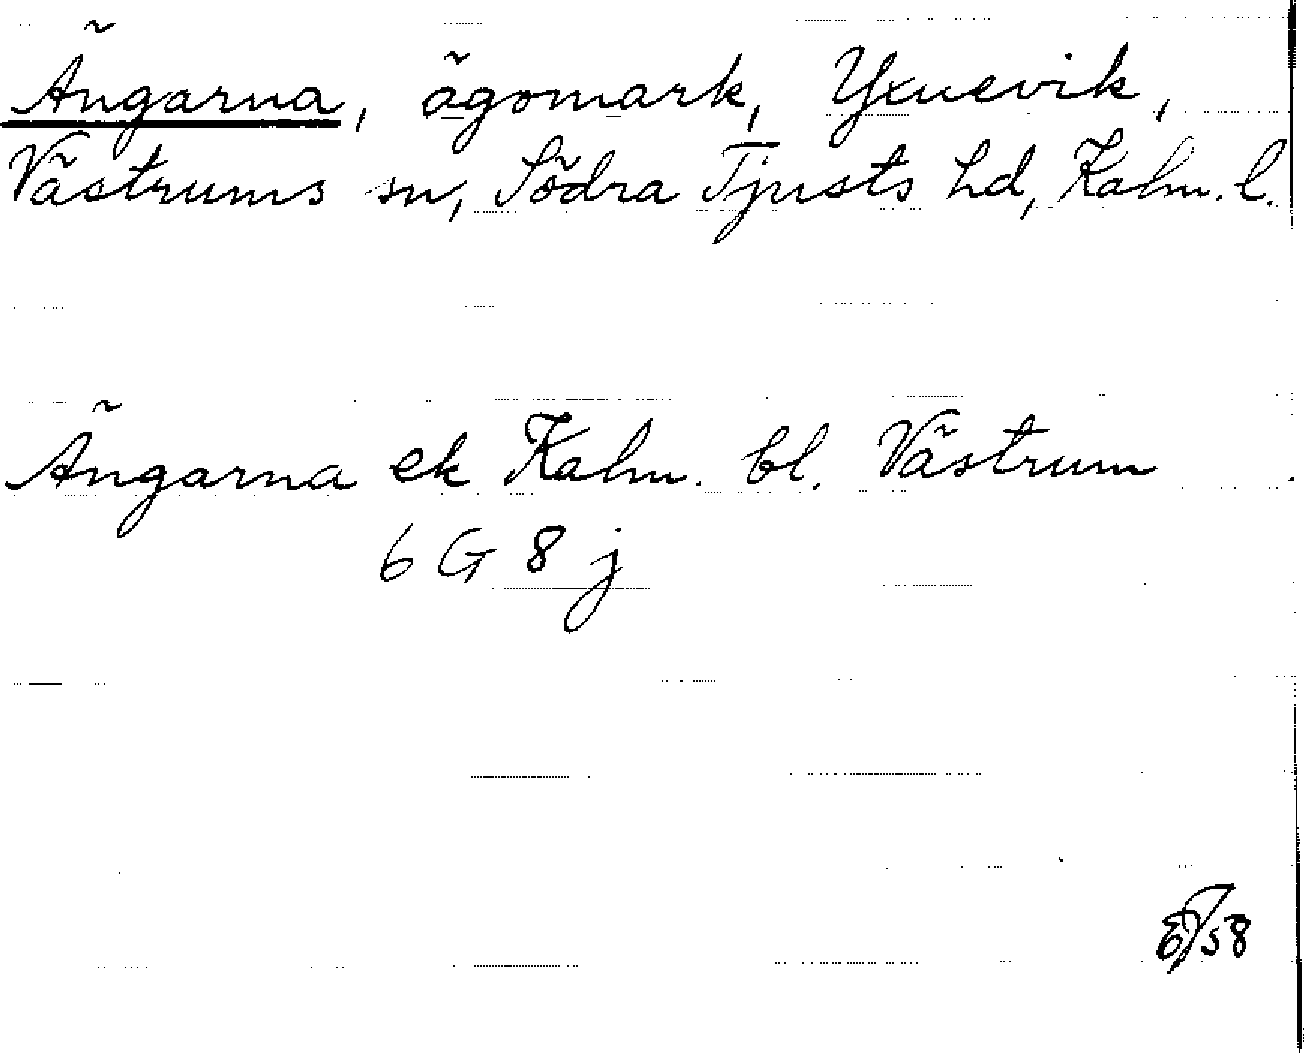 Ängarna, ägomark, Yxnevik,
Västrums sn, Södra Tjusts hd, Kalm. l.
Ängarna ek Kalm. bl. Västrum
6 G 8 j